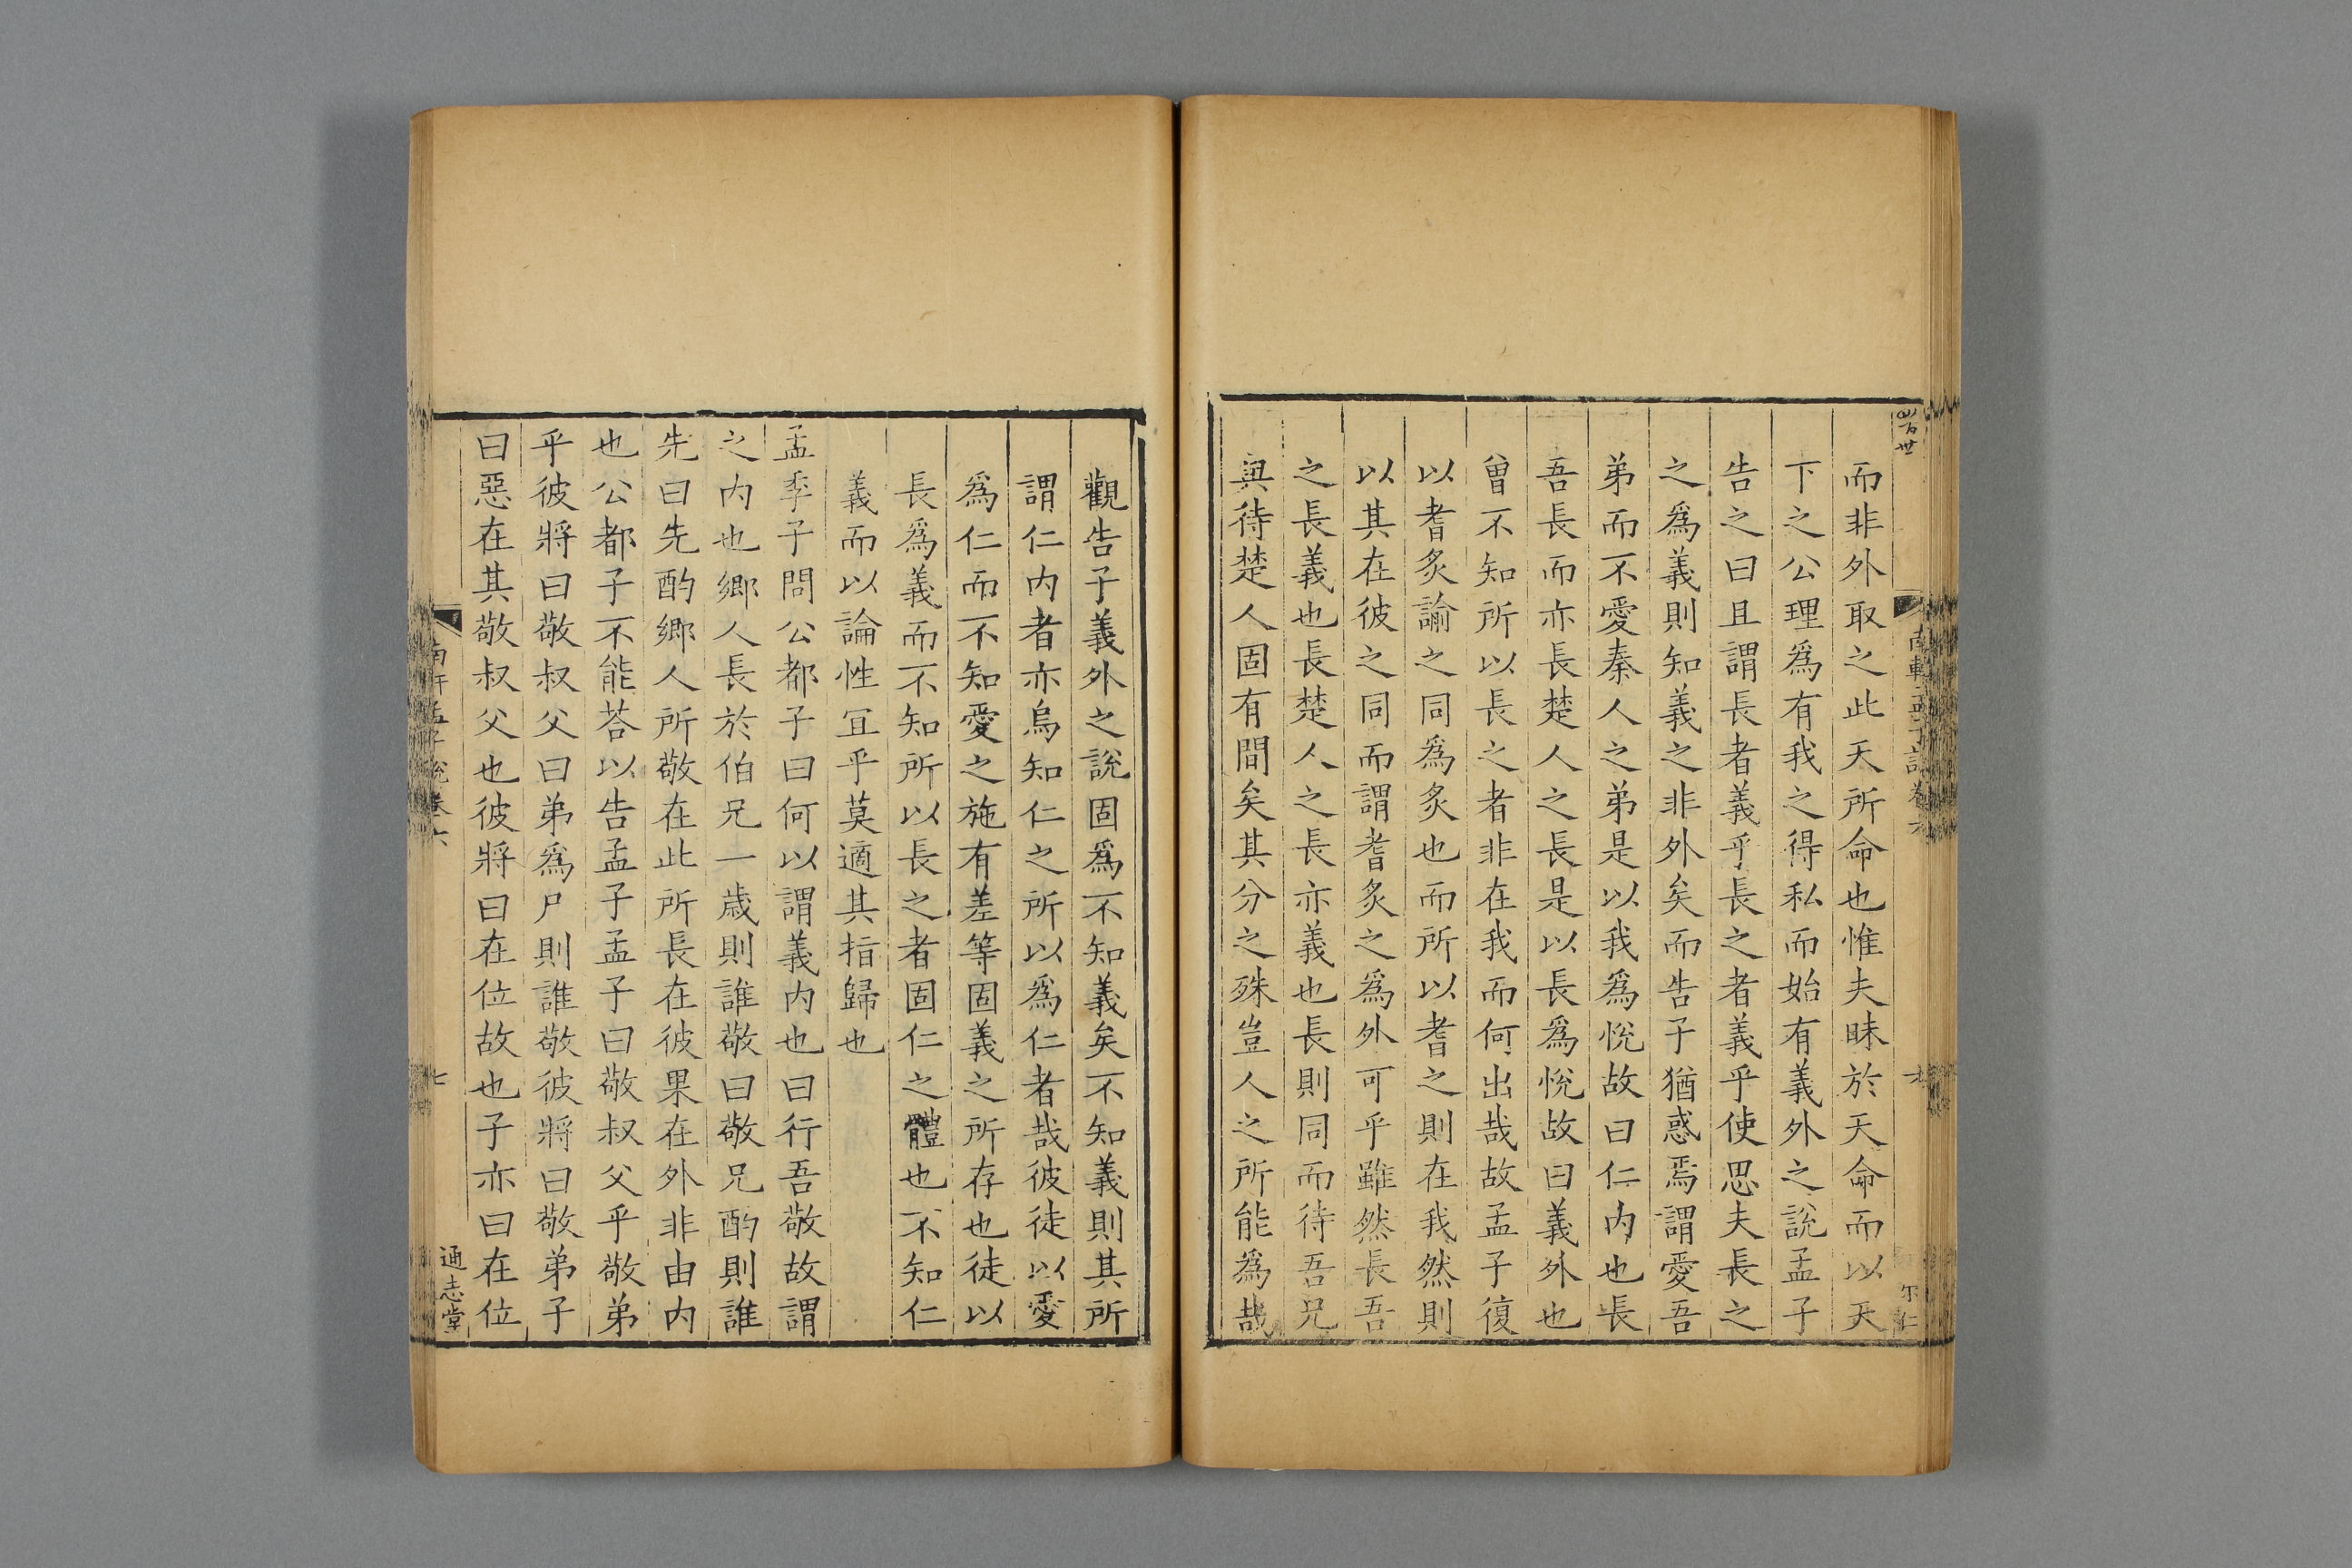 而非外取之此天所命也惟夫昧於天命而以天
下之公理爲有我之得私而始有義外之說孟子
告之曰且謂長者義乎長之者義乎使思夫長之
之爲義則知義之非外矣而告子猶惑焉謂愛吾
弟而不愛秦人之弟是以我爲悅故曰仁内也長
吾長而亦長楚人之長是以長爲悅故曰義外也
曾不知所以長之者非在我而何出哉故孟子復
以耆炙諭之同爲炙也而所以耆之則在我然則
以其在彼之同而謂耆炙之爲外可乎雖然長吾
之長義也長楚人之長亦義也長則同而待吾兄
與待楚人固有間矣其分之殊豈人之所能爲哉
觀告子義外之說固爲不知義矣不知義則其所
謂仁内者亦烏知仁之所以爲仁者哉彼徒以愛
爲仁而不知愛之施有差等固義之所存也徒以
長爲義而不知所以長之者固仁之體也不知仁
義而以論性宜乎莫適其指歸也
孟季子問公都子曰何以謂義内也曰行吾敬故謂
之内也鄉人長於伯兄一歲則誰敬曰敬兄酌則誰
先曰先酌鄉人所敬在此所長在彼果在外非由内
也公都子不能荅以告孟子孟子曰敬叔父乎敬弟
乎彼將曰敬叔父曰弟爲尸則誰敬彼將曰敬弟子
曰惡在其敬叔父也彼將曰在位故也子亦曰在位
南軒孟子說卷六
七
通志堂